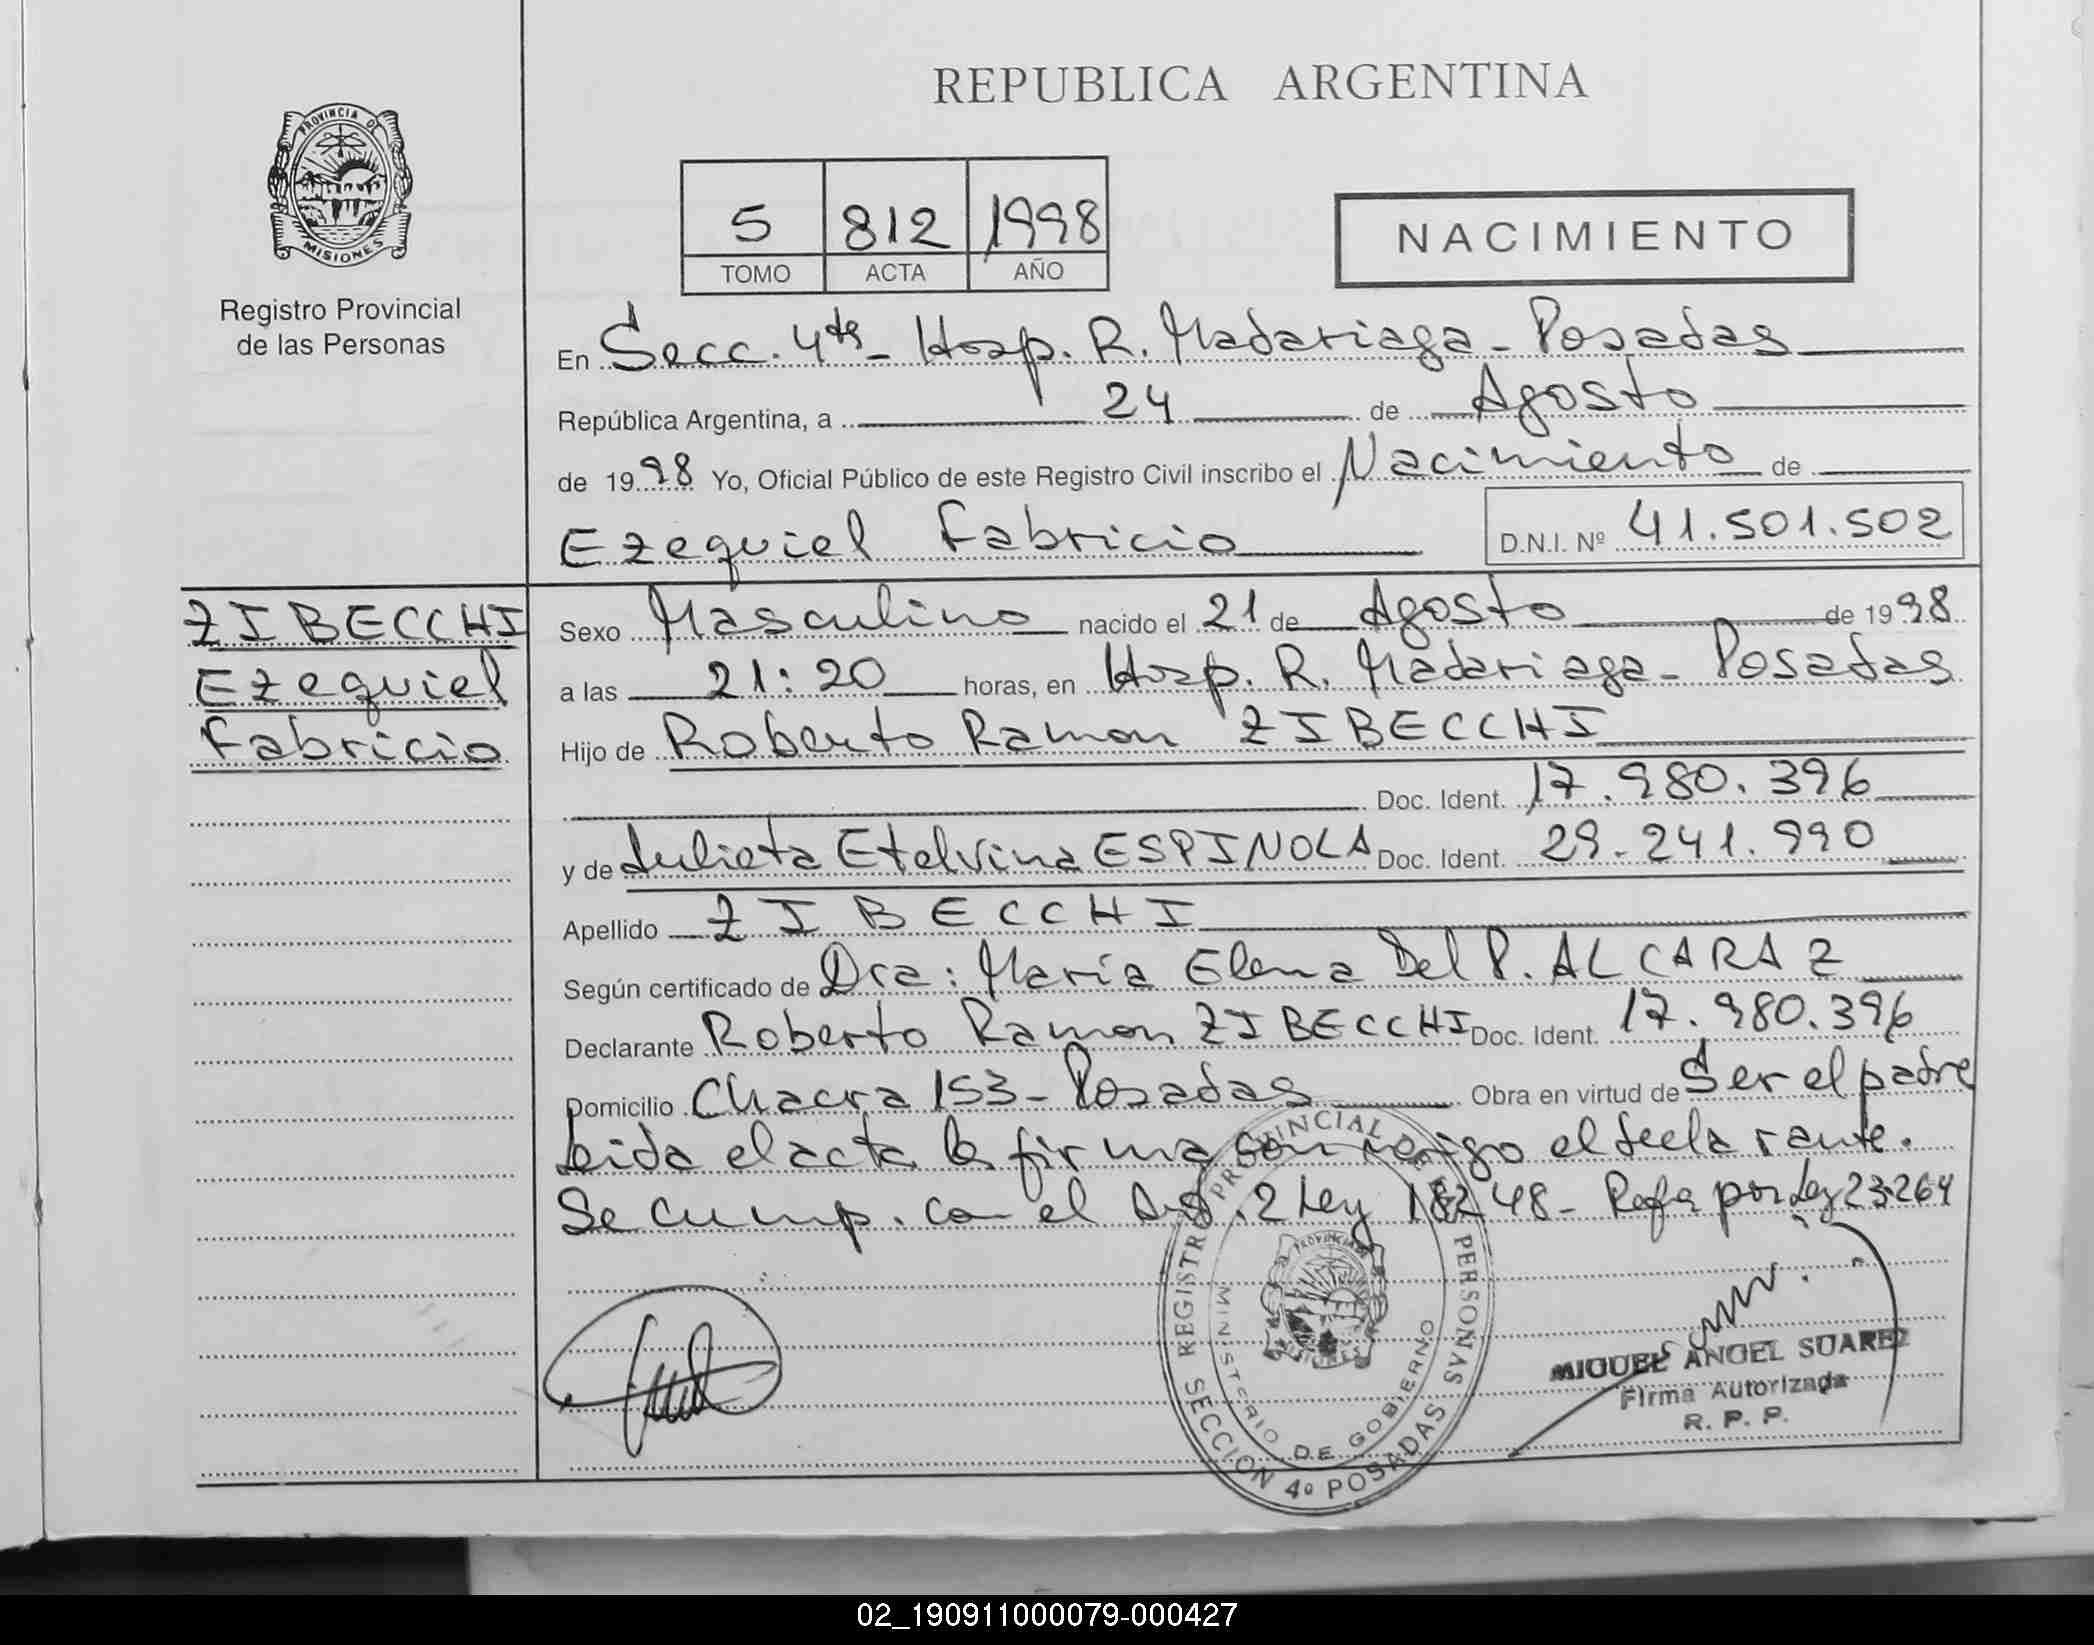 REPUBLICA ARGENTINA
PROVINCIA DE
MISIONES
Registro Provincial
de las Personas
5 812 1998
TOMO ACTA AÑO
NACIMIENTO
En Secc. 4ta - Hosp. R. Madariaga - Posadas
República Argentina, a 24 de Agosto
de 1998 Yo, Oficial Público de este Registro Civil inscribo el Nacimiento de
Ezequiel Fabricio D.N.I. Nº 41.501.502
ZIBECCHI
Ezequiel
Fabricio
Sexo Masculino nacido el 21 de Agosto de 1998
a las 21:20 horas, en Hosp. R. Madariaga - Posadas
Hijo de Roberto Ramon ZIBECCHI
Doc. Ident. 17.980.396
y de Julieta Etelvina ESPINOLA Doc. Ident. 29.241.990
Apellido ZIBECCHI
Según certificado de Dra: María Elena Del P. ALCARAZ
Declarante Roberto Ramon ZIBECCHI Doc. Ident. 17.980.396
Domicilio Chacra 153 - Posadas Obra en virtud de Ser el padre
leida el acta la firma con migo el declarante.
Se cump. con el Art. 2 Ley 18248 - por Ley 23.264
REGISTRO PROVINCIAL DE LAS PERSONAS
MINISTERIO DE GOBIERNO
SECCION 4º POSADAS
MIGUEL ANGEL SUAREZ
Firma Autorizada
R. P. P.
02_190911000079-000427